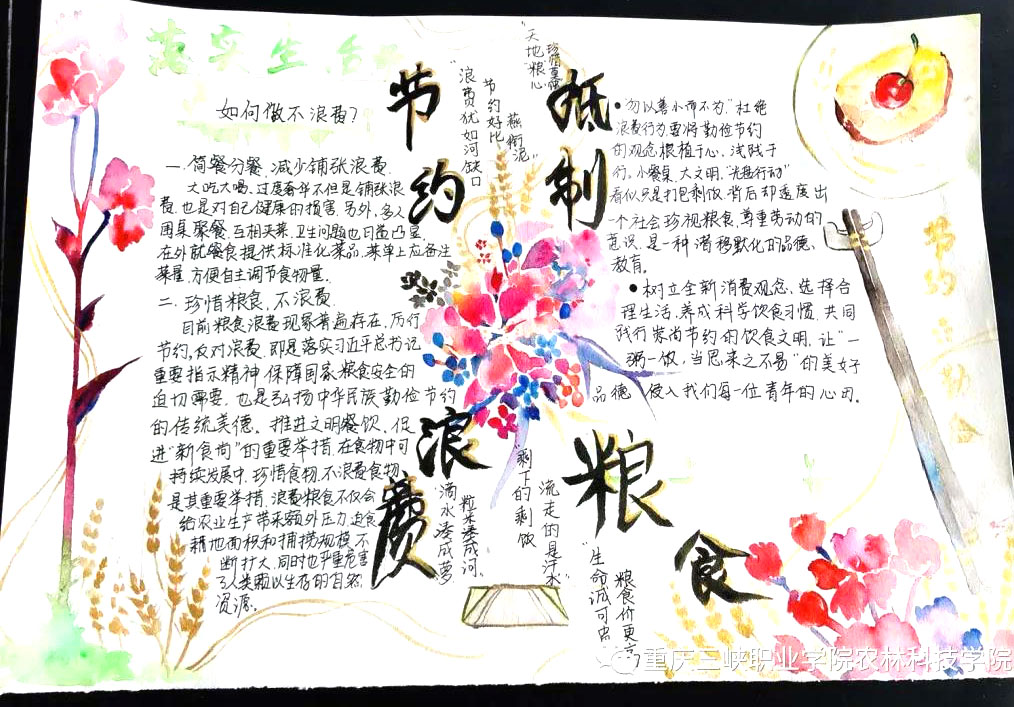 落实生
如何做不浪费?
一.简餐分餐.减少铺张浪费.
大吃大喝.过度奢华不但是铺张浪
费.也是对自己健康的损害.另外,多人
围桌聚餐.互相夹菜.卫生问题也日益凸显.
在外就餐食提供标准化菜品.菜单上应备注
菜量.方便自主调节食物量.
二.珍惜粮食.不浪费
目前粮食浪费现象普遍存在,厉行
节约,反对浪费.即是落实习近平总书记
重要指示精神.保障国家粮食安全的
迫切需要.也是弘扬中华民族勤俭节约
的传统美德。推进文明餐饮,促
进"新食尚"的重要举措.在食物中可
持续发展中.珍惜食物.不浪费食物
是其重要举措.浪费粮食不仅会
给农业生产带来额外压力.迫食
耕地面积和捕捞规模不
断打大.同时也严重危害
了人类赖以生存的自然
资源。
节约
浪费
抵制
粮食
"浪费犹如河缺口
节约好比
燕衔泥"
"天地粮心
"滴水凑成萝
粒米凑成河.
"剩下的剩饭
流走的是汗水"
"生命诚可贵
粮食价更高
●勿以善小而不为"杜绝
浪费行为要将勤俭节约
的观念根植于心,浅践于
行。小餐桌.大文明."光盘行动"
看似只是打包剩饭.背后却透度出
一个社会珍视粮食.尊重劳动的
意识.是一种潜移默化的品德、
教育。
●树立全新消费观念.选择合
理生活.养成科学饮食习惯.共同
践行崇尚节约的饮食文明.让"一
粥一饭,当思来之不易"的美好
品德 侵入我们每一位青年的心田.
节约
勤俭
重庆三峡职业学院农林科技学院